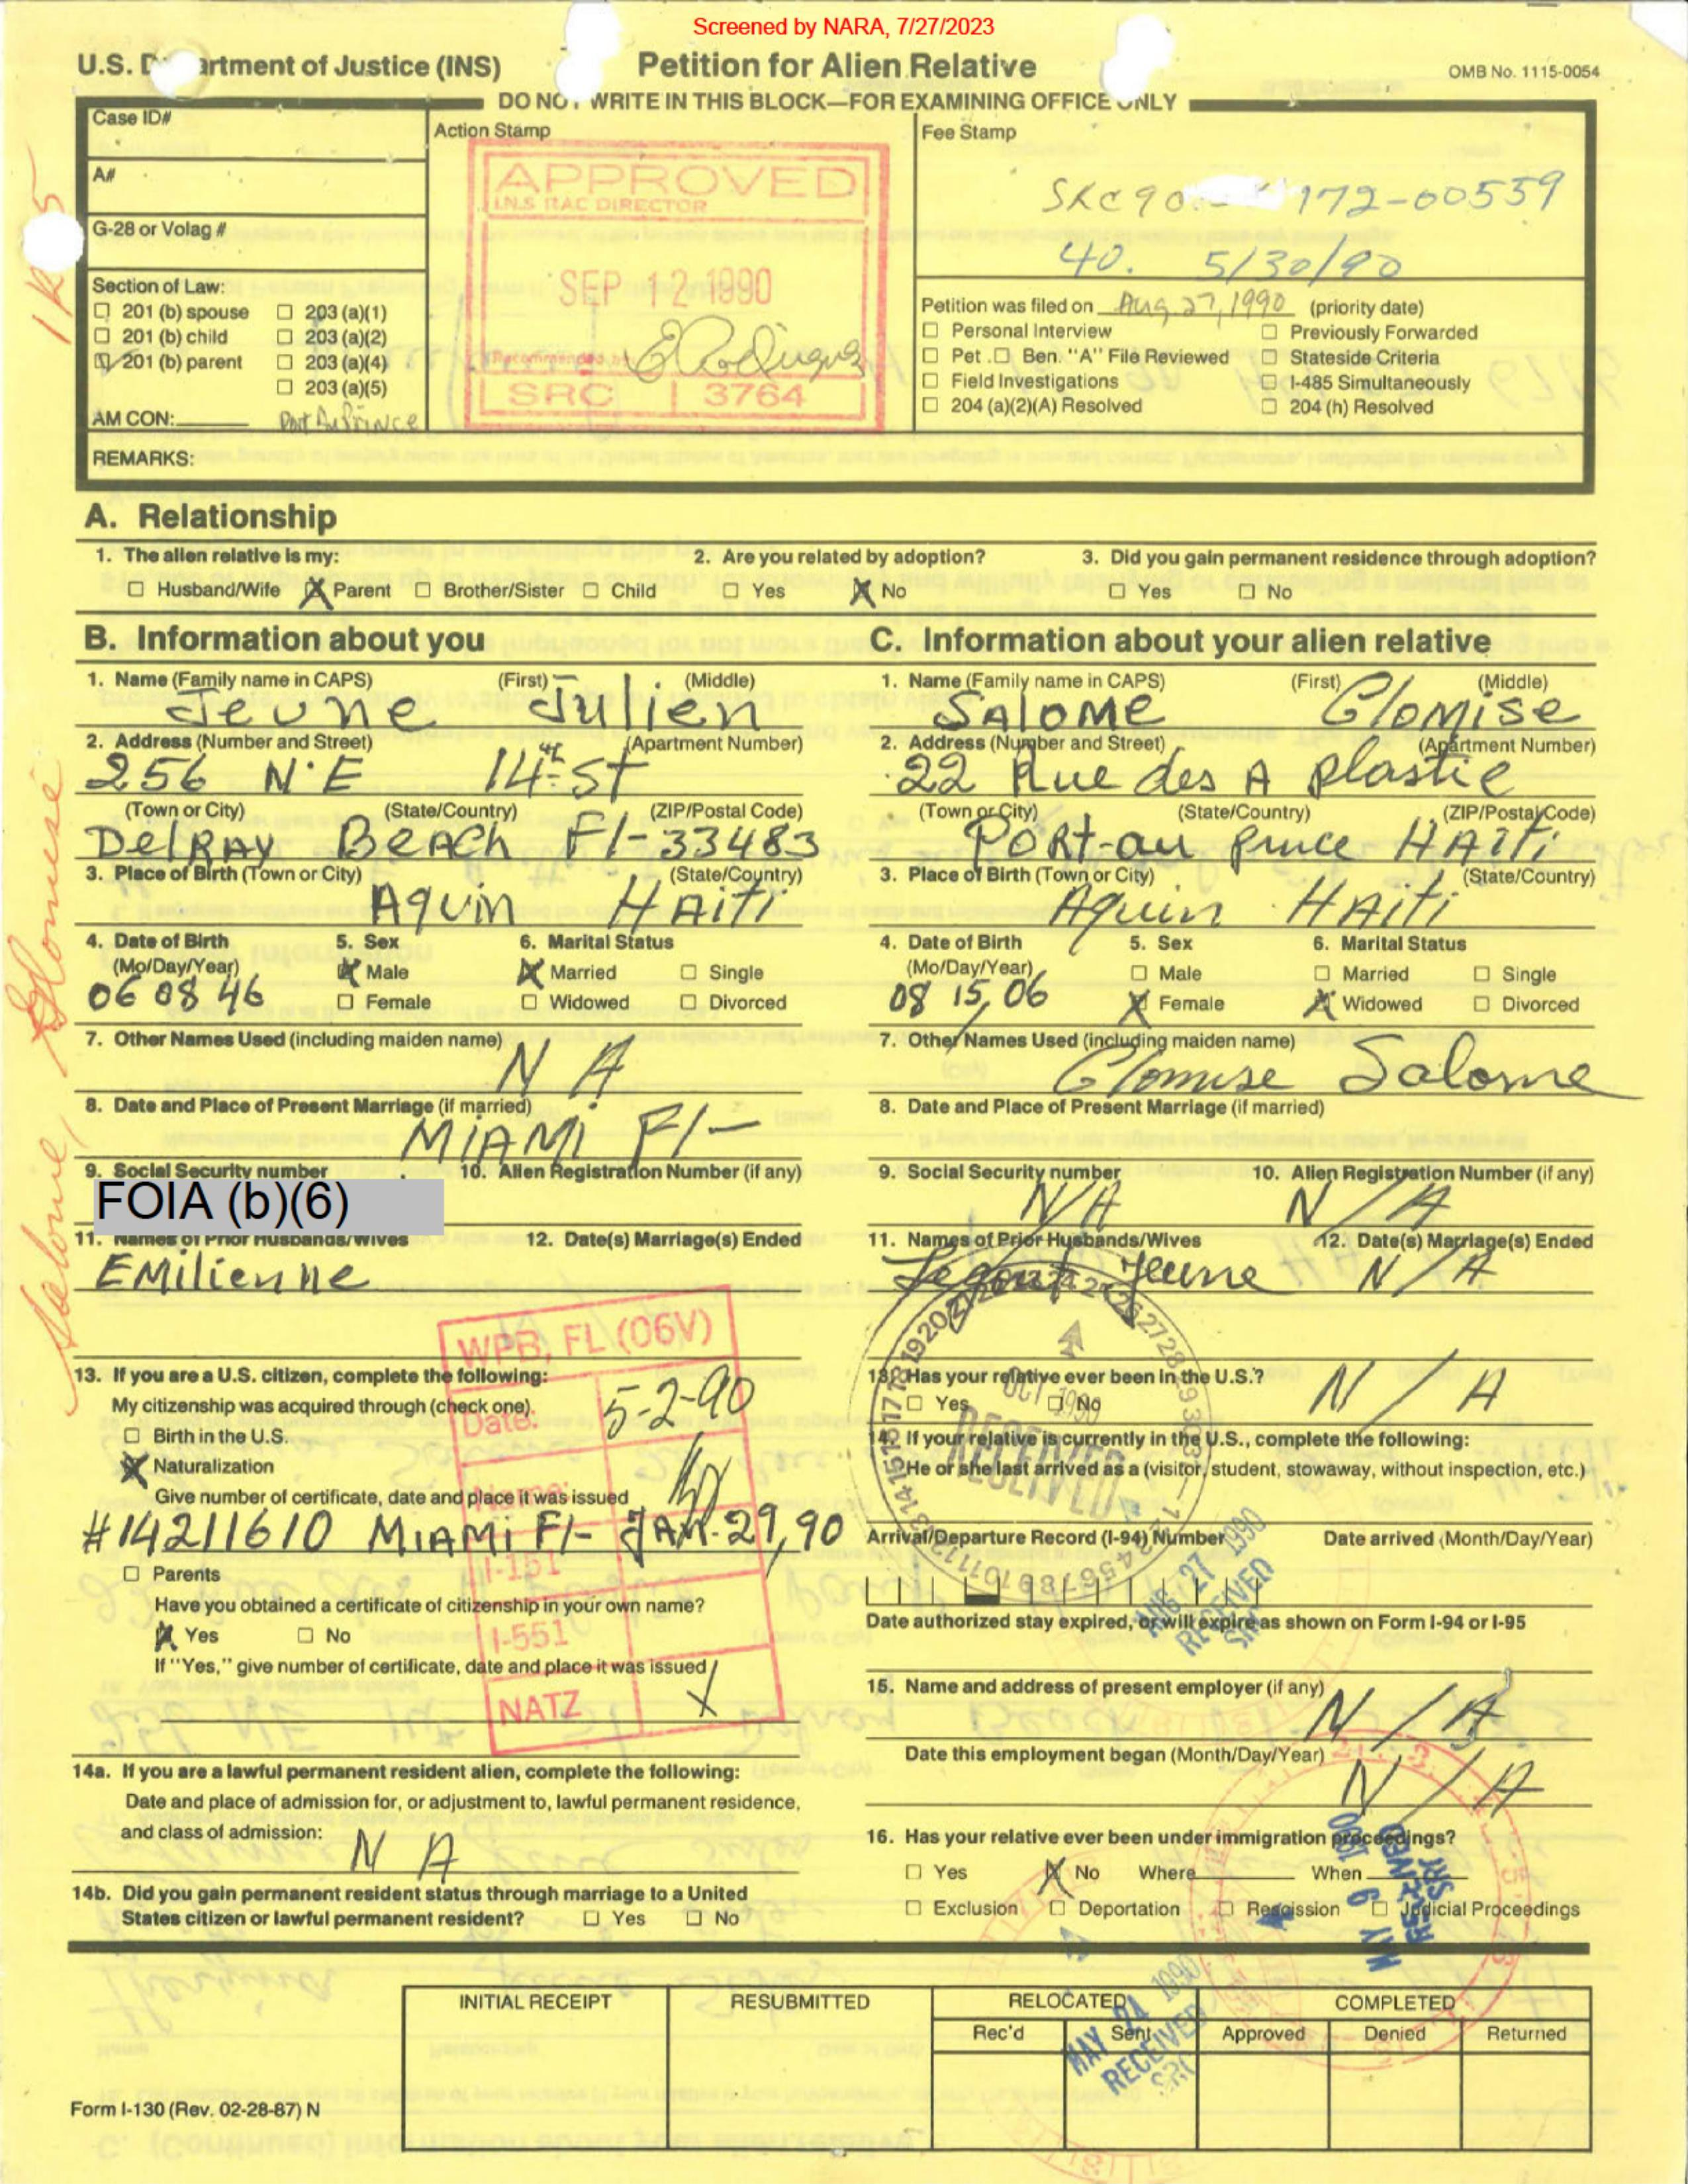 Screened by NARA, 7/27/2023
U.S. D artment of Justice (INS)
Petition for Alien Relative
OMB No. 1115-0054
DO NOT WRITE IN THIS BLOCK—FOR EXAMINING OFFICE ONLY
Case ID#
A#
G-28 or Volag #
Section of Law:
☐ 201 (b) spouse ☐ 203 (a)(1)
☐ 201 (b) child ☐ 203 (a)(2)
☑ 201 (b) parent ☐ 203 (a)(4)
☐ 203 (a)(5)
AM CON: Port Au Prince
Action Stamp
APPROVED
I.N.S RAC DIRECTOR
SEP 12 1990
Recommended by
SRC 3764
Fee Stamp
SRC 90 172-00559
40. 5/30/90
Petition was filed on Aug. 27, 1990 (priority date)
☐ Personal Interview ☐ Previously Forwarded
☐ Pet. ☐ Ben. "A" File Reviewed ☐ Stateside Criteria
☐ Field Investigations ☐ I-485 Simultaneously
☐ 204 (a)(2)(A) Resolved ☐ 204 (h) Resolved
REMARKS:
IR5
Salome, Glomise
A. Relationship
1. The alien relative is my:
☐ Husband/Wife ☒ Parent ☐ Brother/Sister ☐ Child
2. Are you related by adoption?
☐ Yes ☒ No
3. Did you gain permanent residence through adoption?
☐ Yes ☐ No
B. Information about you
1. Name (Family name in CAPS) (First) (Middle)
Jeune Julien
2. Address (Number and Street) (Apartment Number)
256 N.E 14 St
(Town or City) (State/Country) (ZIP/Postal Code)
DelRAY BEACH Fl- 33483
3. Place of Birth (Town or City) (State/Country)
Aquin HAiti
4. Date of Birth 5. Sex 6. Marital Status
(Mo/Day/Year) ☒ Male ☒ Married ☐ Single
06 08 46 ☐ Female ☐ Widowed ☐ Divorced
7. Other Names Used (including maiden name)
N A
8. Date and Place of Present Marriage (if married)
MIAMI Fl-
9. Social Security number 10. Alien Registration Number (if any)
FOIA (b)(6)
11. Names of Prior Husbands/Wives 12. Date(s) Marriage(s) Ended
EMilienne
13. If you are a U.S. citizen, complete the following:
My citizenship was acquired through (check one)
☐ Birth in the U.S.
☒ Naturalization
Give number of certificate, date and place it was issued
#14211610 MIAMI Fl- JAN. 29, 90
☐ Parents
Have you obtained a certificate of citizenship in your own name?
☒ Yes ☐ No
If "Yes," give number of certificate, date and place it was issued
WPB, FL (06V)
Date: 5-2-90
Name:
I-151
I-551
NATZ X
14a. If you are a lawful permanent resident alien, complete the following:
Date and place of admission for, or adjustment to, lawful permanent residence,
and class of admission:
N A
14b. Did you gain permanent resident status through marriage to a United
States citizen or lawful permanent resident? ☐ Yes ☐ No
C. Information about your alien relative
1. Name (Family name in CAPS) (First) (Middle)
SALOME Glomise
2. Address (Number and Street) (Apartment Number)
22 Rue des A plastie
(Town or City) (State/Country) (ZIP/Postal Code)
PORT-au prince HAiti
3. Place of Birth (Town or City) (State/Country)
Aquin HAiti
4. Date of Birth 5. Sex 6. Marital Status
(Mo/Day/Year) ☐ Male ☐ Married ☐ Single
08 15, 06 ☒ Female ☒ Widowed ☐ Divorced
7. Other Names Used (including maiden name)
Glomise Salome
8. Date and Place of Present Marriage (if married)
9. Social Security number 10. Alien Registration Number (if any)
N/A N/A
11. Names of Prior Husbands/Wives 12. Date(s) Marriage(s) Ended
Jeune N/A
13. Has your relative ever been in the U.S.?
☐ Yes ☐ No N/A
OCT 1990
RECEIVED
14. If your relative is currently in the U.S., complete the following:
He or she last arrived as a (visitor, student, stowaway, without inspection, etc.)
Arrival/Departure Record (I-94) Number Date arrived (Month/Day/Year)
AUG 27 1990
RECEIVED
SRC
Date authorized stay expired, or will expire as shown on Form I-94 or I-95
15. Name and address of present employer (if any)
N/A
Date this employment began (Month/Day/Year)
N/A
16. Has your relative ever been under immigration proceedings?
☐ Yes ☒ No Where When
☐ Exclusion ☐ Deportation ☐ Rescission ☐ Judicial Proceedings
MAY 9 1990
RECEIVED
SRC
INITIAL RECEIPT RESUBMITTED RELOCATED COMPLETED
Rec'd Sent Approved Denied Returned
MAY 24 1990
RECEIVED
SRC
Form I-130 (Rev. 02-28-87) N